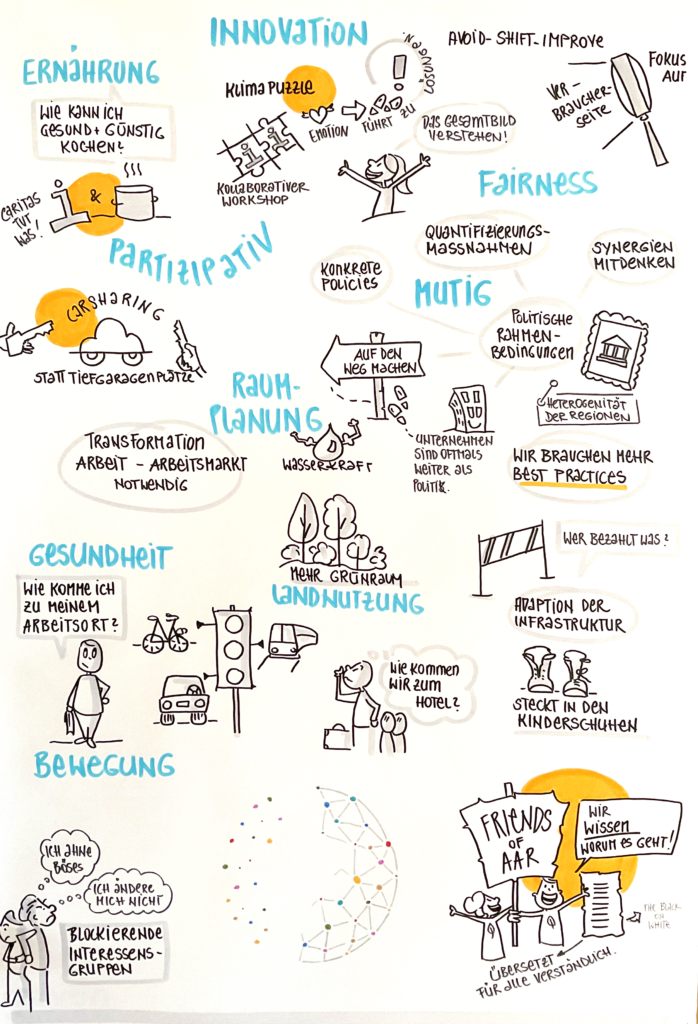 INNOVATION
ERNÄHRUNG
WIE KANN ICH
GESUND + GÜNSTIG
KOCHEN?
&
CARITAS
TUT
WAS!
KLIMA PUZZLE
EMOTION
FÜHRT ZU
LÖSUNGEN
!
KOLLABORATIVER
WORKSHOP
DAS GESAMTBILD
VERSTEHEN!
AVOID-SHIFT-IMPROVE
FOKUS
AUF
VER-
BRAUCHER-
SEITE
FAIRNESS
PARTIZIPATIV
QUANTIFIZIERUNGS-
MASSNAHMEN
SYNERGIEN
MITDENKEN
KONKRETE
POLICIES
MUTIG
POLITISCHE
RAHMEN-
BEDINGUNGEN
HETEROGENITÄT
DER REGIONEN
CARSHARING
STATT TIEFGARAGENPLÄTZE
AUF DEN
WEG MACHEN
UNTERNEHMEN
SIND OFTMALS
WEITER ALS
POLITIK.
RAUM-
PLANUNG
WASSERKRAFT
WIR BRAUCHEN MEHR
BEST PRACTICES
TRANSFORMATION
ARBEIT - ARBEITSMARKT
NOTWENDIG
MEHR GRÜNRAUM
LANDNUTZUNG
WER BEZAHLT WAS?
ADAPTION DER
INFRASTRUKTUR
STECKT IN DEN
KINDERSCHUHEN
GESUNDHEIT
WIE KOMME ICH
ZU MEINEM
ARBEITSORT?
WIE KOMMEN
WIR ZUM
HOTEL?
BEWEGUNG
ICH AHNE
BÖSES
ICH ÄNDERE
MICH NICHT
BLOCKIERENDE
INTERESSENS-
GRUPPEN
FRIENDS
OF
AAR
WIR
WISSEN
WORUM ES GEHT!
THE BLACK
ON
WHITE
ÜBERSETZT
FÜR ALLE VERSTÄNDLICH.